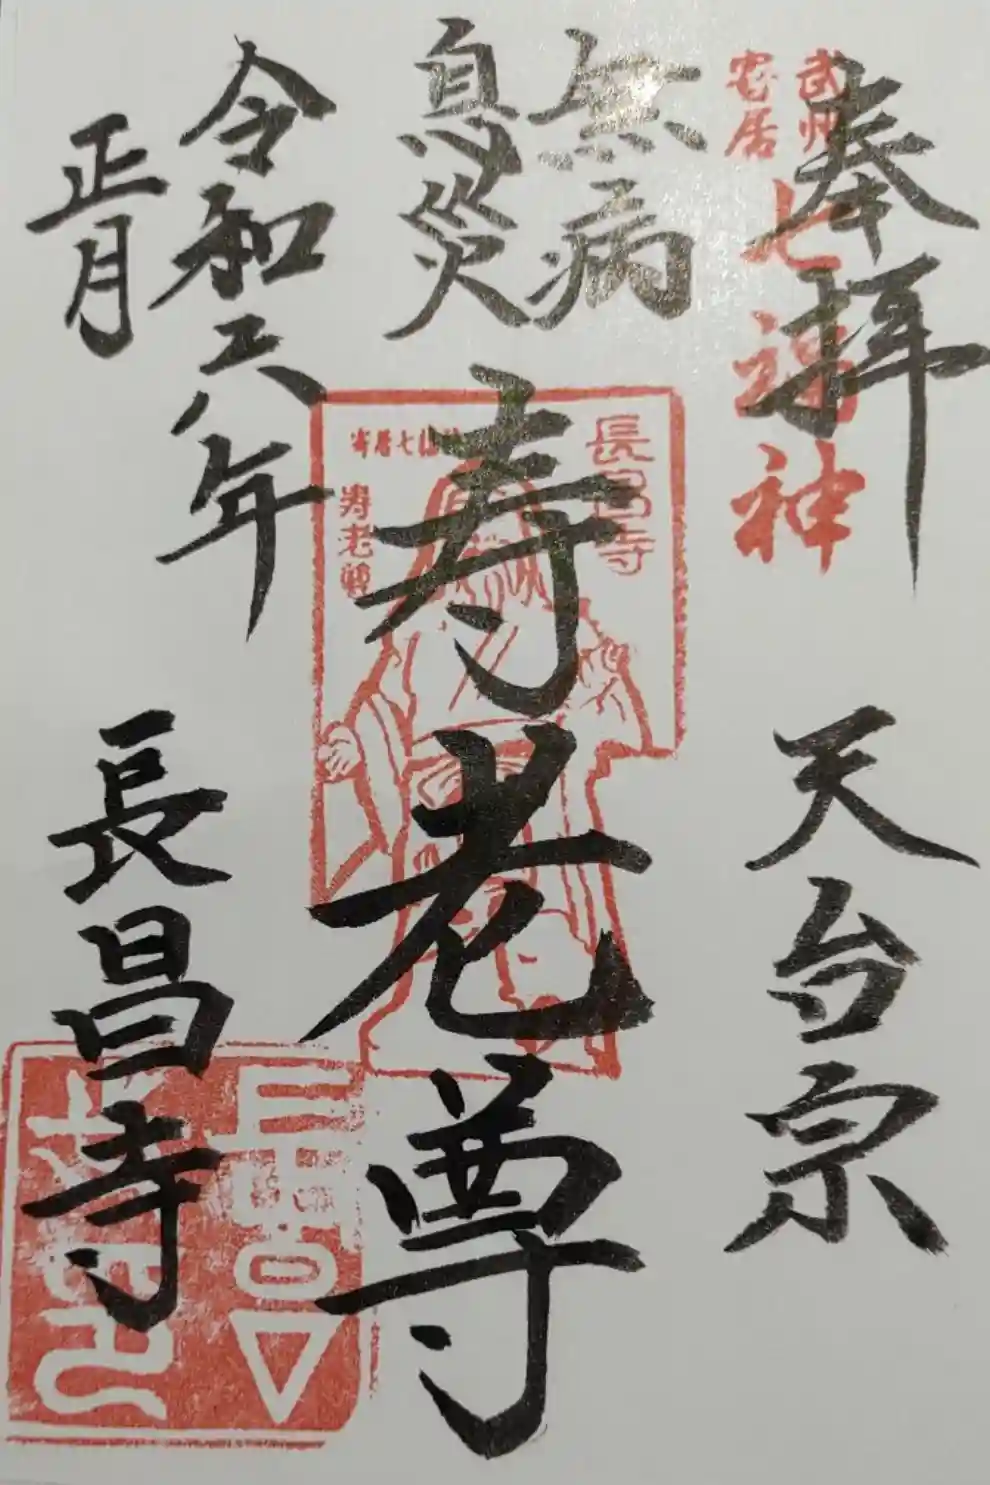 奉拝
武州
寄居
七福神
天台宗
無病
息災
寿老尊
長昌寺
寄居七福神
寿老尊
令和六年
正月
長昌寺